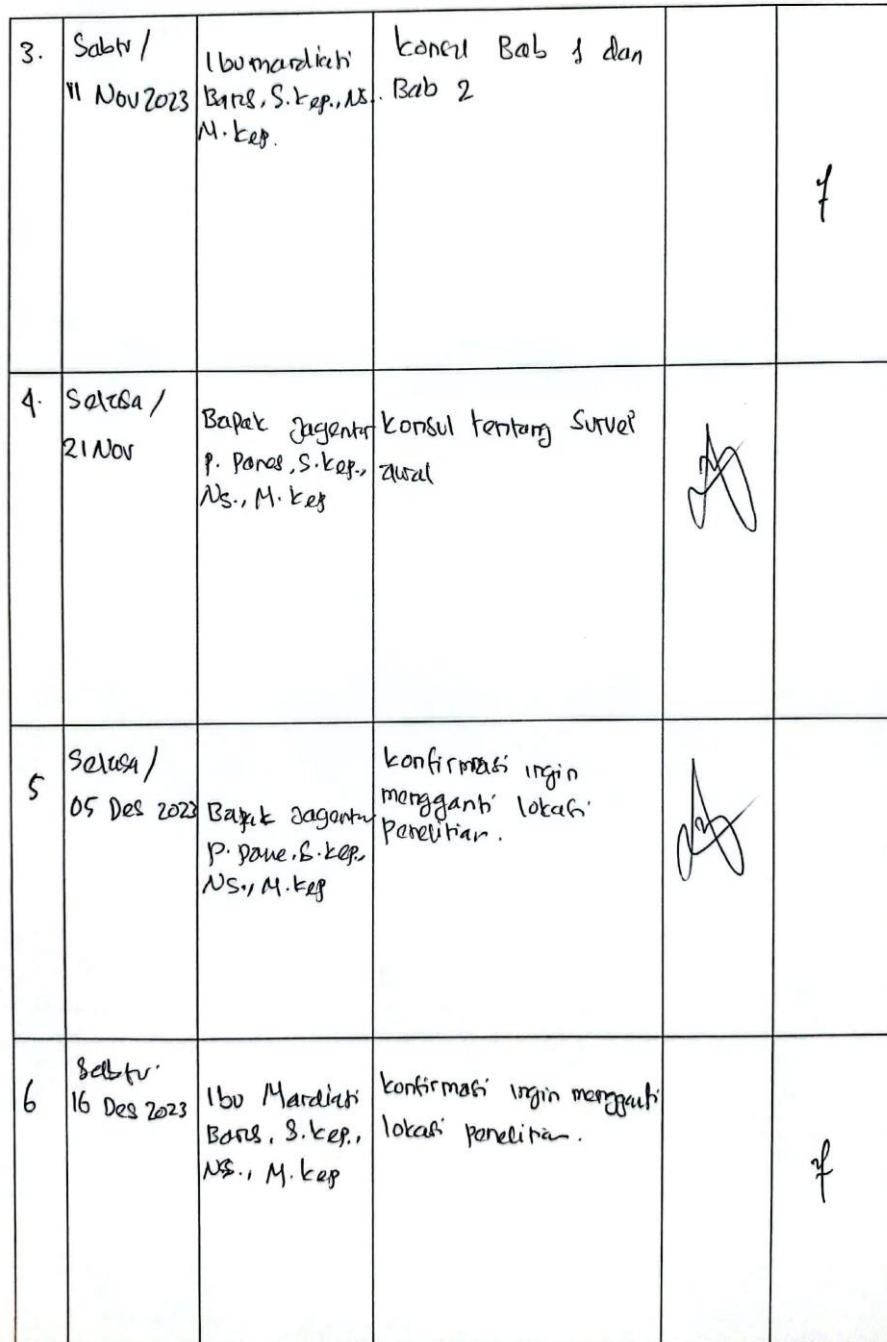 3.
Sabtu /
11 Nov 2023
Ibu mardiati
Barus, S.kep., Ns.
M.kep.
konsul Bab 1 dan
Bab 2
4.
Selasa /
21 Nov
Bapak Jagentar
P. Pane, S.kep.,
Ns., M.kep
konsul tentang Survei
awal
5
Selasa /
05 Des 2023
Bapak Jagentar
P. Pane, S.kep.,
NS., M.kep
konfirmasi ingin
mengganti lokasi
Penelitian.
6
Sabtu
16 Des 2023
Ibu Mardiati
Barus, S.kep.,
NS., M.kep
konfirmasi ingin mengganti
lokasi penelitian.